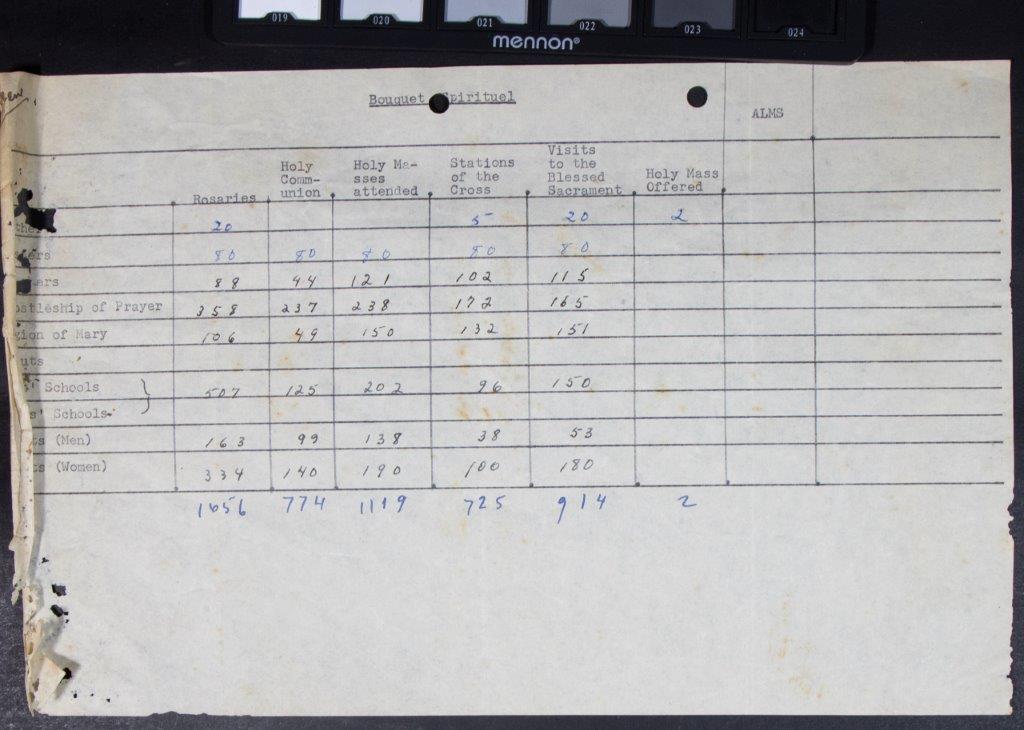 019 020 021 022 023 024
mennon®
Bouquet Spirituel
ALMS
Rosaries Holy Comm-union Holy Ma-sses attended Stations of the Cross Visits to the Blessed Sacrament Holy Mass Offered
20 5 20 2
80 80 80 80 80
88 44 121 102 115
ostleship of Prayer 358 237 238 172 165
gion of Mary 106 49 150 132 151
uts
' Schools } 507 125 202 96 150
s' Schools
ts (Men) 163 99 138 38 53
ts (Women) 334 140 190 100 180
1656 774 1119 725 914 2